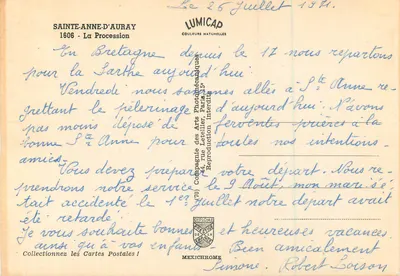 Le 26 Juillet 1971.
SAINTE-ANNE-D'AURAY
1606 - La Procession
LUMICAP
COULEURS NATURELLES
En Bretagne depuis le 17 nous repartons
pour la Sarthe aujourd'hui.
Vendredi nous sommes allés à Ste Anne re-
grettant le pèlerinage d'aujourd'hui. N'avons
pas moins déposé de ferventes prières à la
bonne Ste Anne pour toutes nos intentions
amies.
Vous devez préparer votre départ. Nous re-
prendrons notre service le 9 Août, mon mari s'é-
tait accidenté le 1er Juillet notre départ avait
été retardé.
Je vous souhaite bonnes et heureuses vacances
ainsi qu'à vos enfants. Bien amicalement
Simone Robert Loison
Collectionnez les Cartes Postales !
MEXICHROME
Compagnie des Arts Photomécaniques
44, rue Letellier, Paris 15e
Reproduction interdite